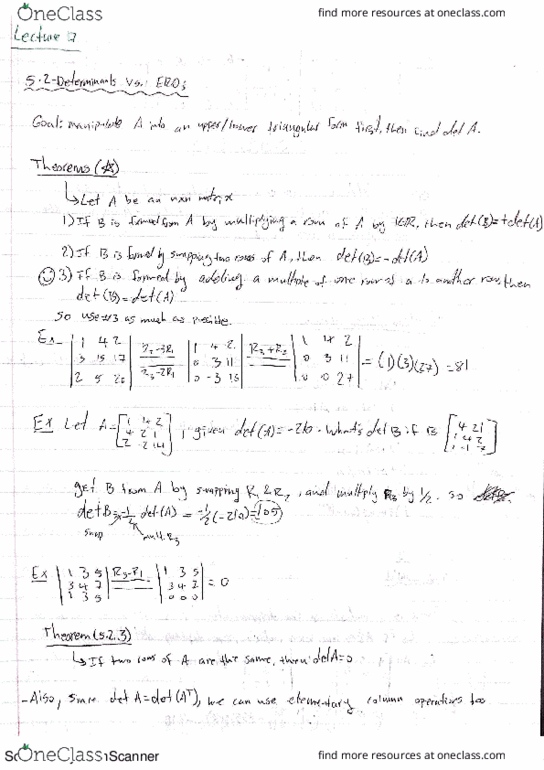 OneClass find more resources at oneclass.com
Lecture 7
5.2-Determinants vs. EROs
Goal: manipulate A into an upper/lower triangular form first, then find det A.
Theorems
↳Let A be an nxn matrix
1) If B is formed from A by multiplying a row of A by tϵR, then det(B)=tdet(A)
2) If B is formed by swapping two rows of A, then det(B)=-det(A)
3) If B is formed by adding a multiple of one row of a to another row, then
det(B)=det(A)
so use #3 as much as possible.
Ex- | 1 4 2 | R2-3R1 | 1 4 2 | R3+R2 | 1 4 2 |
| 3 15 17 | R3-2R1 | 0 3 11 | | 0 3 11 | = (1)(3)(27) = 81
| 2 5 20 | | 0 -3 16 | | 0 0 27 |
Ex Let A= [ 1 4 2 / 4 2 1 / 2 -2 14 ], given det(A)=-210. What's det B if B [ 4 2 1 / 1 4 2 / 1 -1 7 ]
get B from A by swapping R1 & R2, and multiply R3 by 1/2. so
det B = -1/2 det(A) = -1/2(-210)=105
swap mult. R3
Ex | 1 3 5 | R3-R1 | 1 3 5 |
| 3 4 7 | | 3 4 7 | = 0
| 1 3 5 | | 0 0 0 |
Theorem (5.2.3)
↳ If two rows of A are the same, then det A=0
-Also, since det A=det(A^T), we can use elementary column operations too
OneClass Scanner find more resources at oneclass.com